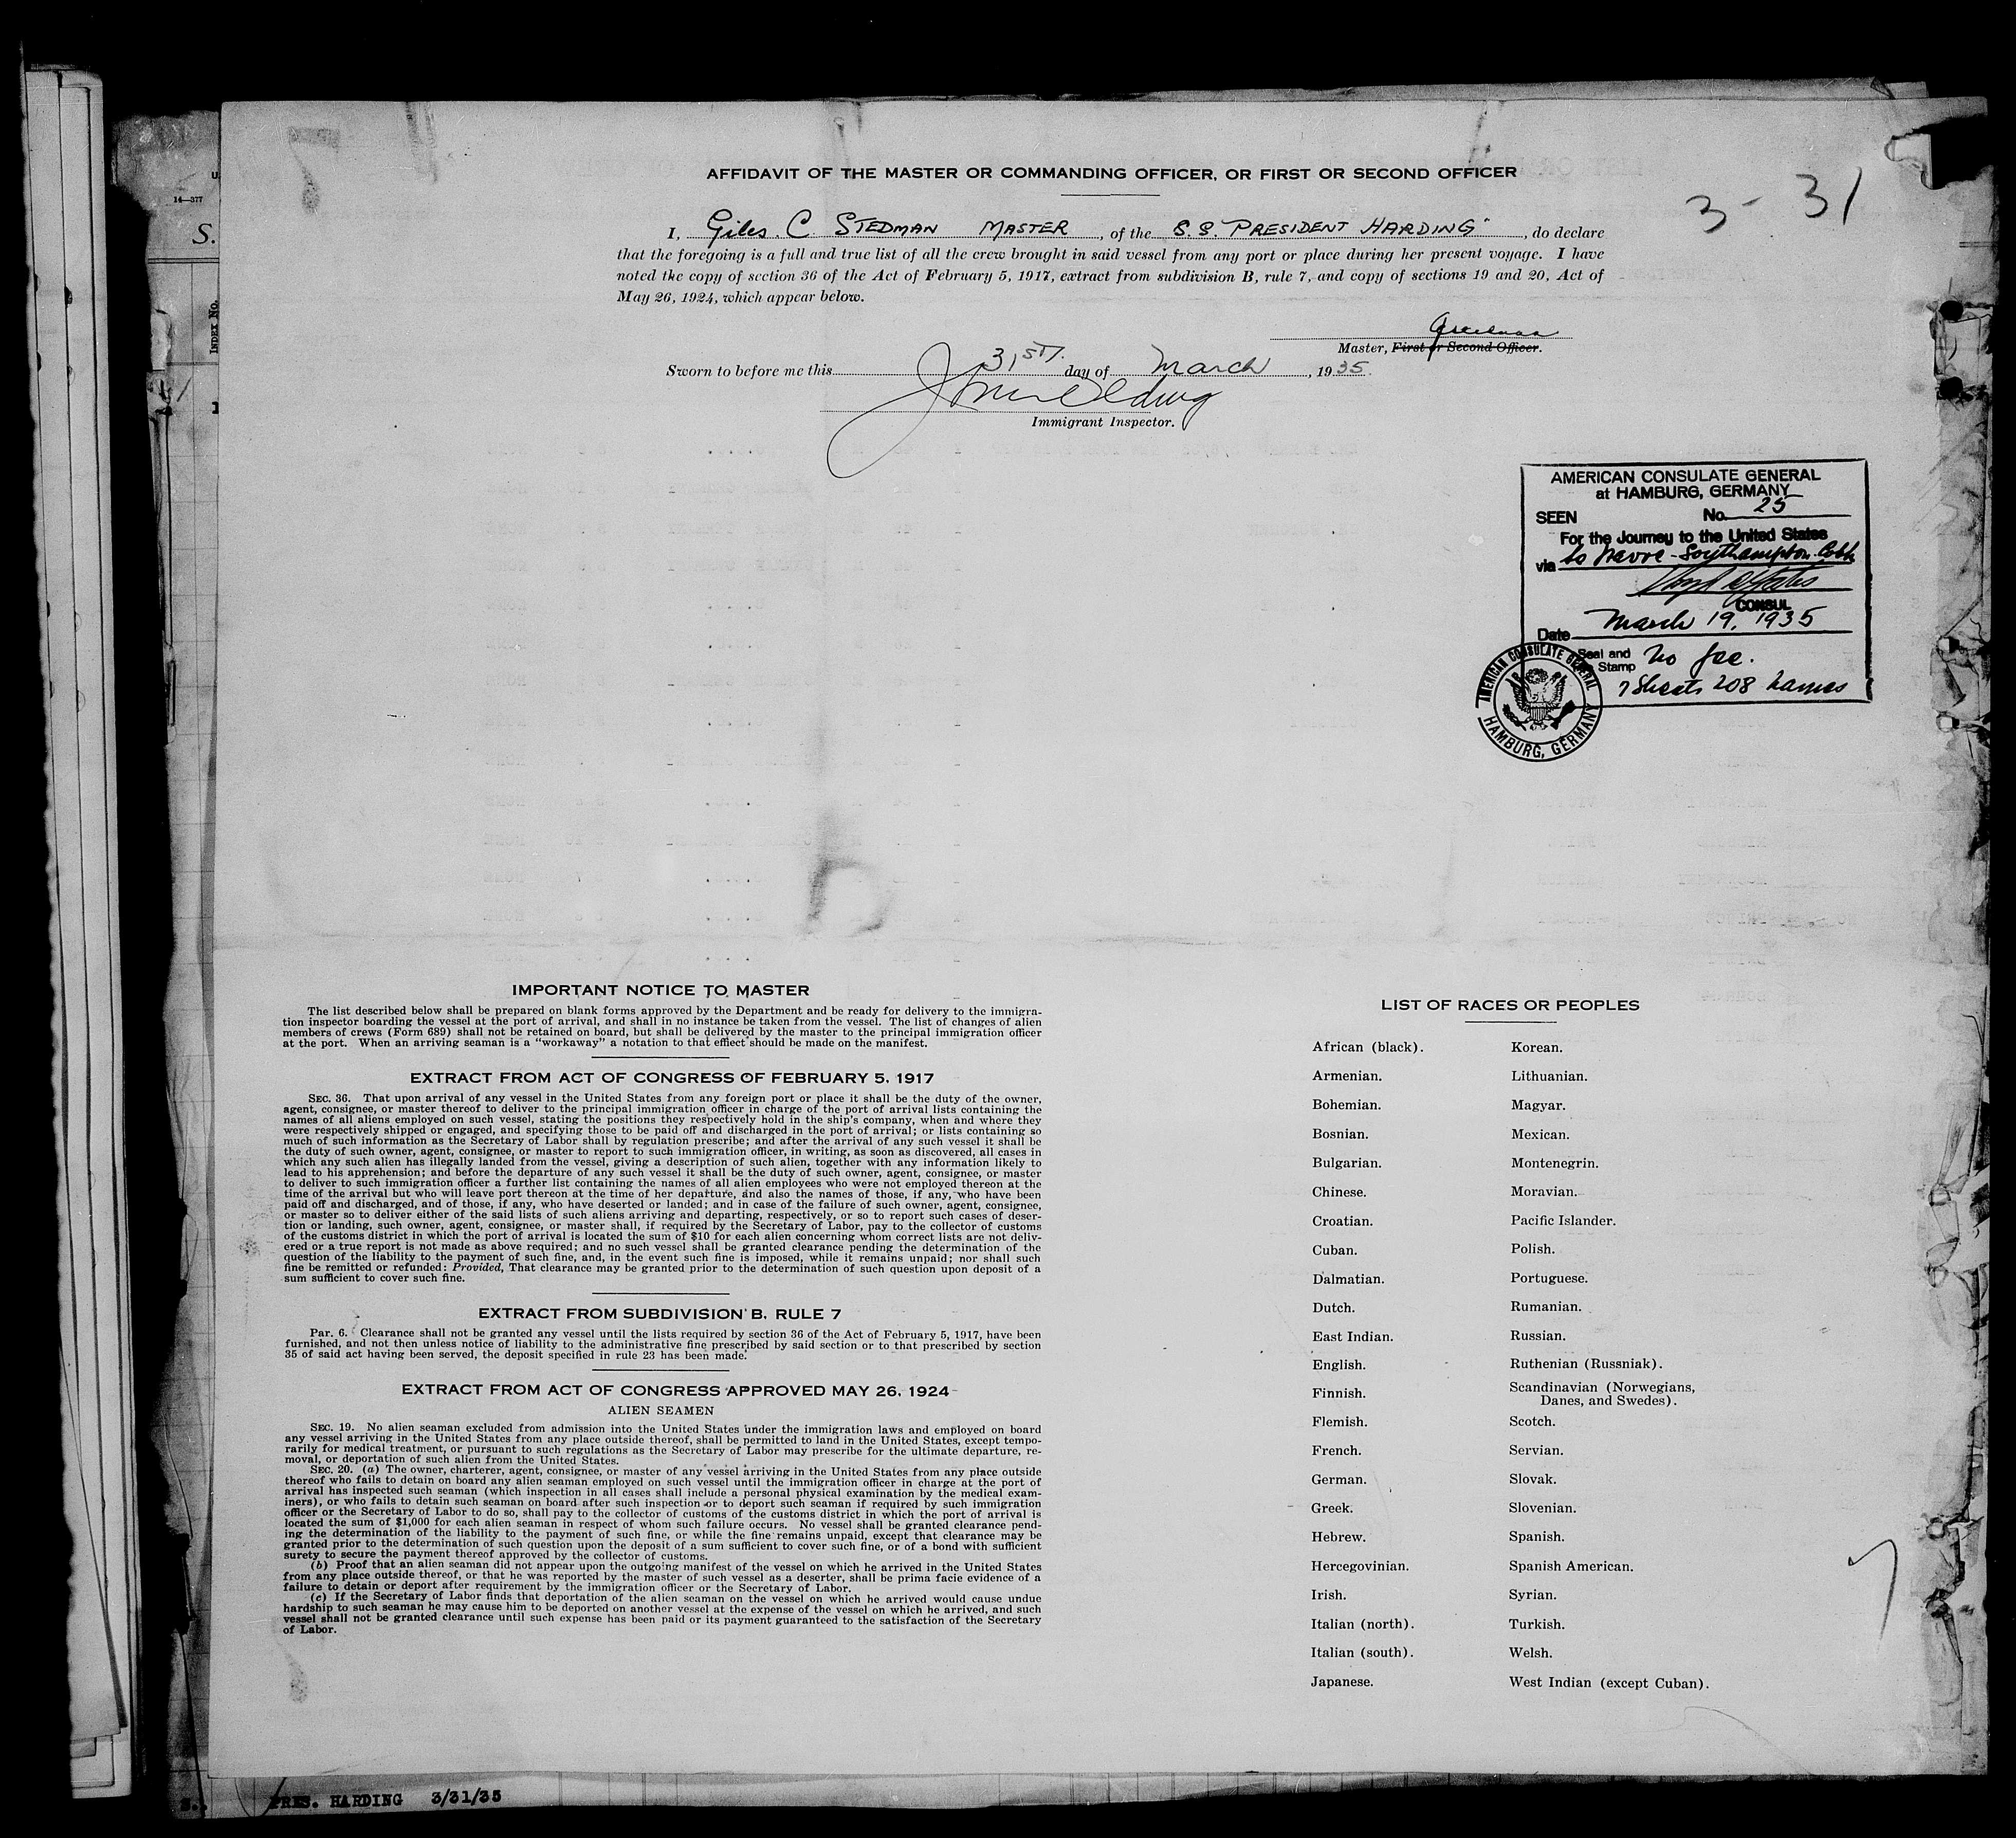 AFFIDAVIT OF THE MASTER OR COMMANDING OFFICER, OR FIRST OR SECOND OFFICER
3 - 31
I, Giles. C. STEDMAN MASTER, of the S.S. PRESIDENT HARDING, do declare
that the foregoing is a full and true list of all the crew brought in said vessel from any port or place during her present voyage. I have
noted the copy of section 36 of the Act of February 5, 1917, extract from subdivision B, rule 7, and copy of sections 19 and 20, Act of
May 26, 1924, which appear below.
Master, First or Second Officer.
Sworn to before me this 31ST. day of March, 1935.
Immigrant Inspector.
AMERICAN CONSULATE GENERAL
at HAMBURG, GERMANY
SEEN No. 25
For the Journey to the United States
via to Havre - Southampton. Cobh
CONSUL
Date March 19, 1935
Seal and Stamp No fee.
7 Sheets 208 names
AMERICAN CONSULATE GENERAL
HAMBURG, GERMANY
IMPORTANT NOTICE TO MASTER
The list described below shall be prepared on blank forms approved by the Department and be ready for delivery to the immigra-
tion inspector boarding the vessel at the port of arrival, and shall in no instance be taken from the vessel. The list of changes of alien
members of crews (Form 689) shall not be retained on board, but shall be delivered by the master to the principal immigration officer
at the port. When an arriving seaman is a “workaway” a notation to that effect should be made on the manifest.
EXTRACT FROM ACT OF CONGRESS OF FEBRUARY 5, 1917
SEC. 36. That upon arrival of any vessel in the United States from any foreign port or place it shall be the duty of the owner,
agent, consignee, or master thereof to deliver to the principal immigration officer in charge of the port of arrival lists containing the
names of all aliens employed on such vessel, stating the positions they respectively hold in the ship's company, when and where they
were respectively shipped or engaged, and specifying those to be paid off and discharged in the port of arrival; or lists containing so
much of such information as the Secretary of Labor shall by regulation prescribe; and after the arrival of any such vessel it shall be
the duty of such owner, agent, consignee, or master to report to such immigration officer, in writing, as soon as discovered, all cases in
which any such alien has illegally landed from the vessel, giving a description of such alien, together with any information likely to
lead to his apprehension; and before the departure of any such vessel it shall be the duty of such owner, agent, consignee, or master
to deliver to such immigration officer a further list containing the names of all alien employees who were not employed thereon at the
time of the arrival but who will leave port thereon at the time of her departure, and also the names of those, if any, who have been
paid off and discharged, and of those, if any, who have deserted or landed; and in case of the failure of such owner, agent, consignee,
or master so to deliver either of the said lists of such aliens arriving and departing, respectively, or so to report such cases of deser-
tion or landing, such owner, agent, consignee, or master shall, if required by the Secretary of Labor, pay to the collector of customs
of the customs district in which the port of arrival is located the sum of $10 for each alien concerning whom correct lists are not deliv-
ered or a true report is not made as above required; and no such vessel shall be granted clearance pending the determination of the
question of the liability to the payment of such fine, and, in the event such fine is imposed, while it remains unpaid; nor shall such
fine be remitted or refunded: Provided, That clearance may be granted prior to the determination of such question upon deposit of a
sum sufficient to cover such fine.
EXTRACT FROM SUBDIVISION B, RULE 7
Par. 6. Clearance shall not be granted any vessel until the lists required by section 36 of the Act of February 5, 1917, have been
furnished, and not then unless notice of liability to the administrative fine prescribed by said section or to that prescribed by section
35 of said act having been served, the deposit specified in rule 23 has been made.
EXTRACT FROM ACT OF CONGRESS APPROVED MAY 26, 1924
ALIEN SEAMEN
SEC. 19. No alien seaman excluded from admission into the United States under the immigration laws and employed on board
any vessel arriving in the United States from any place outside thereof, shall be permitted to land in the United States, except tempo-
rarily for medical treatment, or pursuant to such regulations as the Secretary of Labor may prescribe for the ultimate departure, re-
moval, or deportation of such alien from the United States.
SEC. 20. (a) The owner, charterer, agent, consignee, or master of any vessel arriving in the United States from any place outside
thereof who fails to detain on board any alien seaman employed on such vessel until the immigration officer in charge at the port of
arrival has inspected such seaman (which inspection in all cases shall include a personal physical examination by the medical exam-
iners), or who fails to detain such seaman on board after such inspection or to deport such seaman if required by such immigration
officer or the Secretary of Labor to do so, shall pay to the collector of customs of the customs district in which the port of arrival is
located the sum of $1,000 for each alien seaman in respect of whom such failure occurs. No vessel shall be granted clearance pend-
ing the determination of the liability to the payment of such fine, or while the fine remains unpaid, except that clearance may be
granted prior to the determination of such question upon the deposit of a sum sufficient to cover such fine, or of a bond with sufficient
surety to secure the payment thereof approved by the collector of customs.
(b) Proof that an alien seaman did not appear upon the outgoing manifest of the vessel on which he arrived in the United States
from any place outside thereof, or that he was reported by the master of such vessel as a deserter, shall be prima facie evidence of a
failure to detain or deport after requirement by the immigration officer or the Secretary of Labor.
(c) If the Secretary of Labor finds that deportation of the alien seaman on the vessel on which he arrived would cause undue
hardship to such seaman he may cause him to be deported on another vessel at the expense of the vessel on which he arrived, and such
vessel shall not be granted clearance until such expense has been paid or its payment guaranteed to the satisfaction of the Secretary
of Labor.
LIST OF RACES OR PEOPLES
African (black).
Armenian.
Bohemian.
Bosnian.
Bulgarian.
Chinese.
Croatian.
Cuban.
Dalmatian.
Dutch.
East Indian.
English.
Finnish.
Flemish.
French.
German.
Greek.
Hebrew.
Hercegovinian.
Irish.
Italian (north).
Italian (south).
Japanese.
Korean.
Lithuanian.
Magyar.
Mexican.
Montenegrin.
Moravian.
Pacific Islander.
Polish.
Portuguese.
Rumanian.
Russian.
Ruthenian (Russniak).
Scandinavian (Norwegians,
Danes, and Swedes).
Scotch.
Servian.
Slovak.
Slovenian.
Spanish.
Spanish American.
Syrian.
Turkish.
Welsh.
West Indian (except Cuban).
7
14—377
S.
INDEX No.
PRES. HARDING 3/31/35